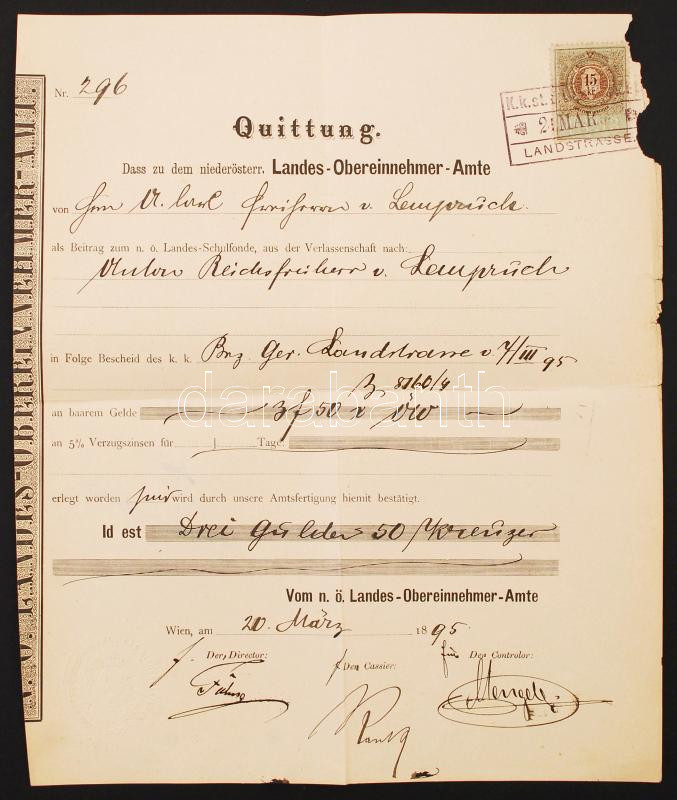 N. Ö. LANDES-OBEREINNEHMER-AMT.
Nr. 296
15
K.k.st.
MAR
LANDSTRASSE.
Quittung.
Dass zu dem niederösterr. Landes-Obereinnehmer-Amte
von Herrn Carl Freiherrn v. Lempruch
als Beitrag zum n. ö. Landes-Schulfonde, aus der Verlassenschaft nach:
Anton Reichsfreiherr v. Lempruch
in Folge Bescheid des k. k. Bez. Ger. Landstrasse v. 7/III 95
Z. 8160/4
an baarem Gelde 3 f 50 x öw
an 5% Verzugszinsen für Tage:
erlegt worden sind wird durch unsere Amtsfertigung hiemit bestätigt.
Id est Drei Gulden 50 Kreuzer
Vom n. ö. Landes-Obereinnehmer-Amte
Wien, am 20. März 1895
Der Director: f Den Cassier: für Den Controlor:
Mengele
darabanth